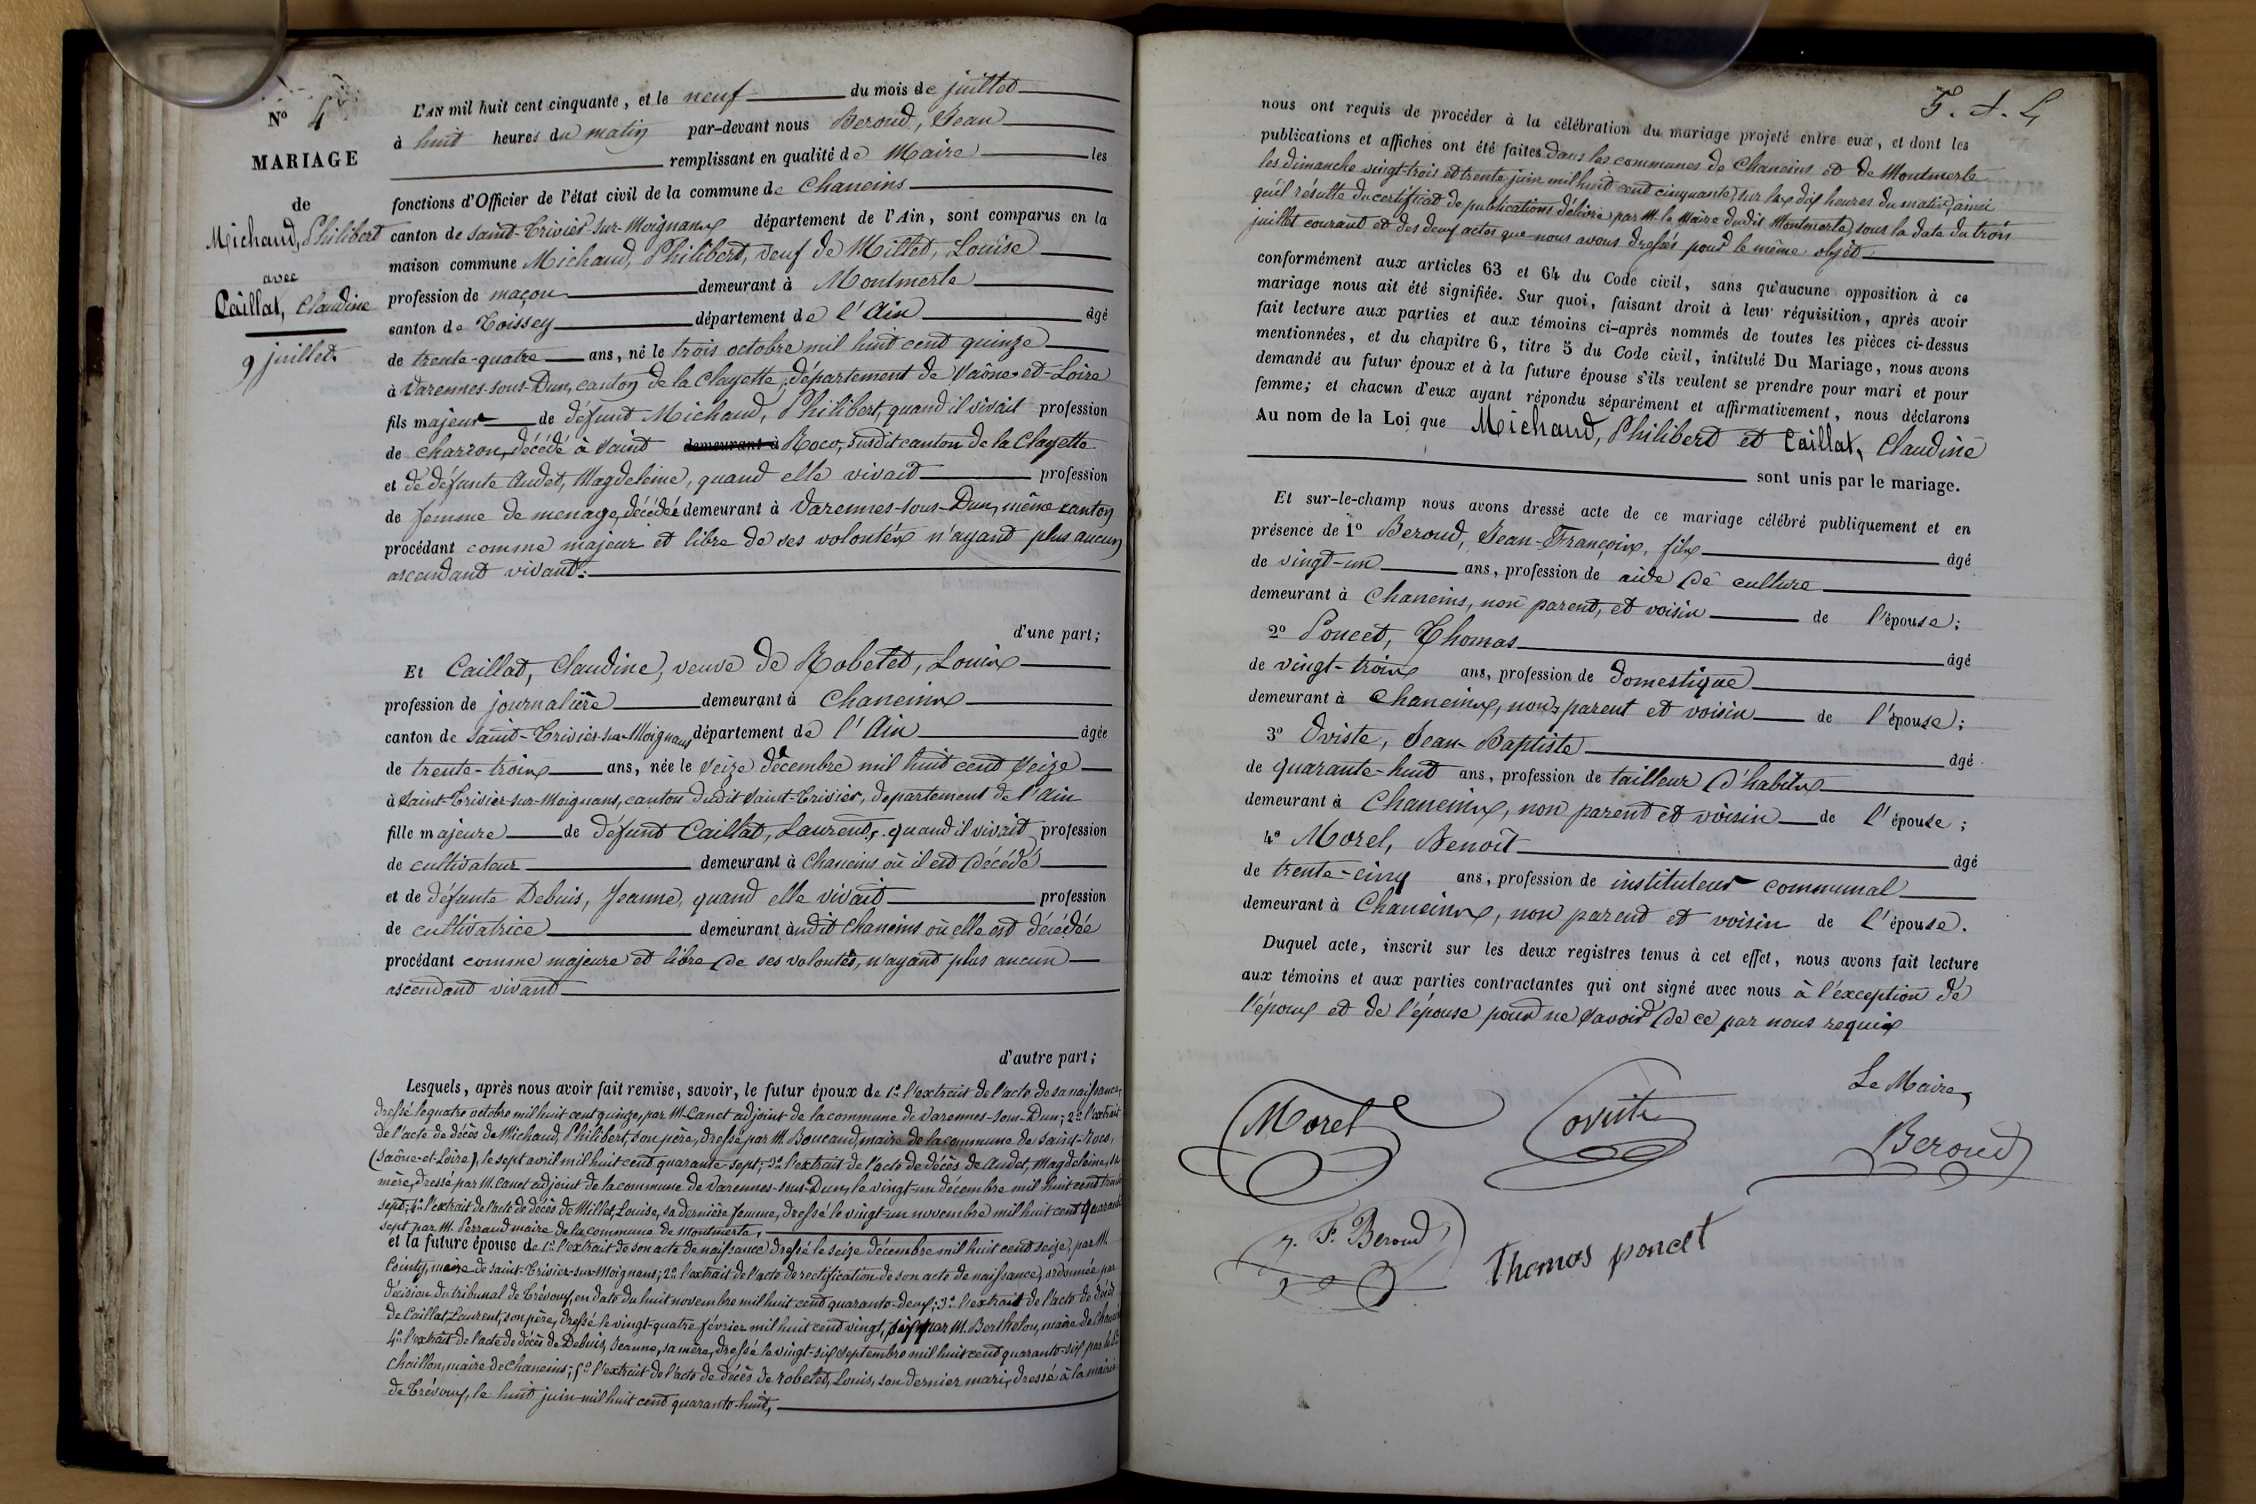 N° 4
MARIAGE
de
Michaud, Philibert
avec
Caillat, Claudine
9 juillet.
L'AN mil huit cent cinquante, et le neuf du mois de juillet
à huit heures du matin par-devant nous Beroud, Jean
remplissant en qualité de Maire les
fonctions d'Officier de l'état civil de la commune de Chaneins
canton de Saint-Trivier-sur-Moignans département de l'Ain, sont comparus en la
maison commune Michaud, Philibert, veuf de Millet, Louise
profession de maçon demeurant à Montmerle
canton de Toissey département de l'Ain âgé
de trente-quatre ans, né le trois octobre mil huit cent quinze
à Varennes-sous-Dun, canton de la Clayette, département de Saône-et-Loire
fils majeur de défunt Michaud, Philibert, quand il vivait profession
de charron, décédé à Saint demeurant à Roco, susdit canton de la Clayette
et de défunte Audet, Magdeleine, quand elle vivait profession
de femme de menage, décédée demeurant à Varennes-sous-Dun, même canton
procédant comme majeur et libre de ses volontés n'ayant plus aucun
ascendant vivant.
d'une part;
Et Caillat, Claudine, veuve de Robetet, Louis
profession de journalière demeurant à Chaneins
canton de Saint-Trivier-sur-Moignans département de l'Ain âgée
de trente-trois ans, née le seize décembre mil huit cent seize
à Saint-Trivier-sur-Moignans, canton dudit Saint-Trivier, département de l'Ain
fille majeure de défunt Caillat, Laurent, quand il vivait profession
de cultivateur demeurant à Chaneins où il est décédé
et de défunte Debuis, Jeanne, quand elle vivait profession
de cultivatrice demeurant àudit Chaneins où elle est décédée
procédant comme majeure et libre de ses volontés, n'ayant plus aucun
ascendant vivant
d'autre part;
Lesquels, après nous avoir fait remise, savoir, le futur époux de 1° l'extrait de l'acte de sa naissance,
dressé le quatre octobre mil huit cent quinze, par M. Canet adjoint de la commune de Varennes-sous-Dun; 2° l'extrait
de l'acte de décès de Michaud, Philibert, son père, dressé par M. Boucaud, maire de la commune de Saint-Roco,
(Saône-et-Loire), le sept avril mil huit cent quarante-sept; 3° l'extrait de l'acte de décès de Audet, Magdeleine, sa
mère, dressé par M. Canet adjoint de la commune de Varennes-sous-Dun, le vingt-un décembre mil huit cent trente
sept; 4° l'extrait de l'acte de décès de Millet, Louise, sa dernière femme, dressé le vingt-un novembre mil huit cent quarante
sept par M. Perraud maire de la commune de Montmerle,
et la future épouse de 1° l'extrait de son acte de naissance dressé le seize décembre mil huit cent seize, par M.
maire de Saint-Trivier-sur-Moignans; 2° l'extrait de l'acte de rectification de son acte de naissance, ordonnée par
décision du tribunal de Trévoux, en date du huit novembre mil huit cent quarante-neuf; 3° l'extrait de l'acte de décès
de Caillat, Laurent, son père, dressé le vingt-quatre février mil huit cent vingt, par M. Berthelon, maire de Chaneins
4° l'extrait de l'acte de décès de Debuis, Jeanne, sa mère, dressé le vingt-six septembre mil huit cent quarante-six par le
Chaillon, maire de Chaneins; 5° l'extrait de l'acte de décès de robetet, Louis, son dernier mari, dressé à la mairie
de Trévoux, le huit juin mil huit cent quarante-huit,
nous ont requis de procéder à la célébration du mariage projeté entre eux, et dont les
publications et affiches ont été faites dans les communes de Chaneins et de Montmerle
les dimanche vingt-trois et trente juin mil huit cent cinquante, sur les dix heures du matin, ainsi
qu'il résulte du certificat de publications délivré par M. le Maire dudit Montmerle, sous la date du trois
juillet courant et des deux actes que nous avons dressés pour le même objet
conformément aux articles 63 et 64 du Code civil, sans qu'aucune opposition à ce
mariage nous ait été signifiée. Sur quoi, faisant droit à leur réquisition, après avoir
fait lecture aux parties et aux témoins ci-après nommés de toutes les pièces ci-dessus
mentionnées, et du chapitre 6, titre 5 du Code civil, intitulé Du Mariage, nous avons
demandé au futur époux et à la future épouse s'ils veulent se prendre pour mari et pour
femme; et chacun d'eux ayant répondu séparément et affirmativement, nous déclarons
Au nom de la Loi que Michaud, Philibert et Caillat, Claudine
sont unis par le mariage.
Et sur-le-champ nous avons dressé acte de ce mariage célébré publiquement et en
présence de 1° Beroud, Jean-François, fils âgé
de vingt-un ans, profession de aide de culture
demeurant à Chaneins, non parent, et voisin de l'épouse;
2° Poncet, Thomas âgé
de vingt-trois ans, profession de domestique
demeurant à Chaneins, non parent et voisin de l'épouse;
3° Oviste, Jean-Baptiste âgé
de quarante-huit ans, profession de tailleur d'habits
demeurant à Chaneins, non parent et voisin de l'épouse;
4° Morel, Benoît âgé
de trente-cinq ans, profession de instituteur communal
demeurant à Chaneins, non parent et voisin de l'épouse.
Duquel acte, inscrit sur les deux registres tenus à cet effet, nous avons fait lecture
aux témoins et aux parties contractantes qui ont signé avec nous à l'exception de
l'époux et de l'épouse pour ne savoir de ce par nous requis
Le Maire,
Morel Oviste Beroud
J. F. Beroud Thomas poncet